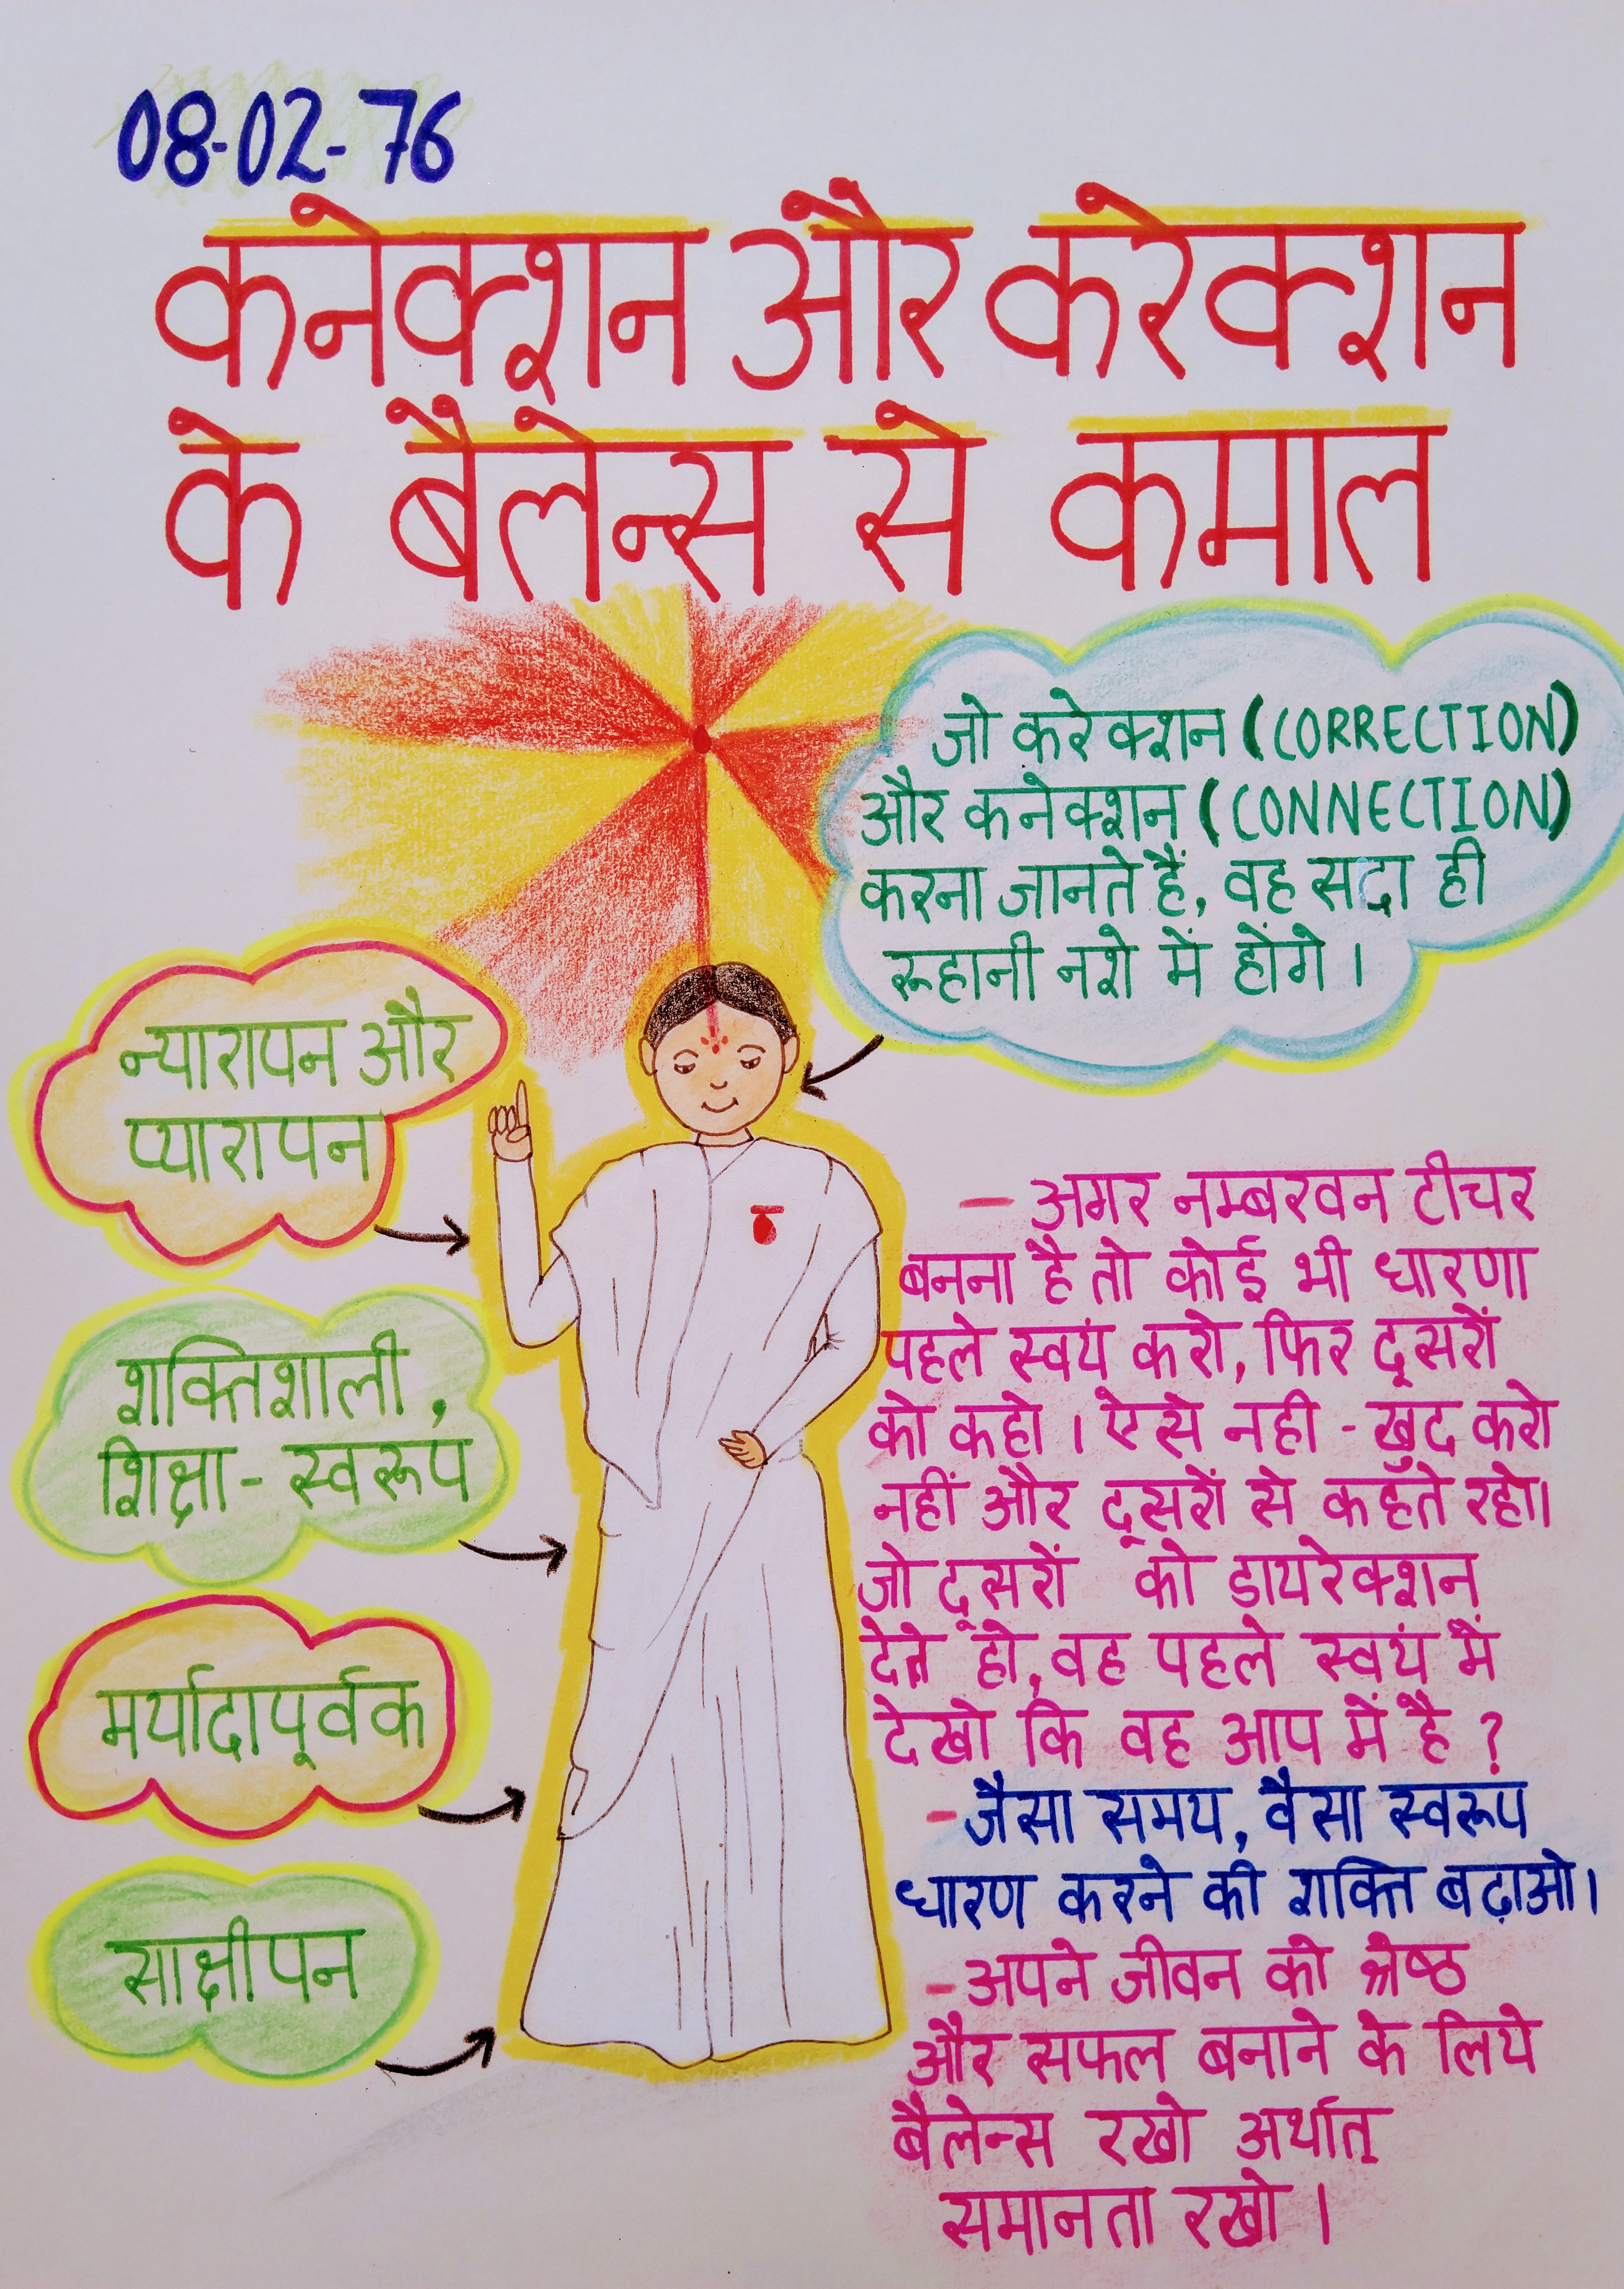 08-02-76
कनेक्शन और करेक्शन
के बैलेन्स से कमाल
जो करेक्शन (CORRECTION)
और कनेक्शन (CONNECTION)
करना जानते हैं, वह सदा ही
रूहानी नशे में होंगे।
न्यारापन और
प्यारापन
शक्तिशाली,
शिक्षा-स्वरूप
मर्यादापूर्वक
साक्षीपन
- अगर नम्बरवन टीचर
बनना है तो कोई भी धारणा
पहले स्वयं करो, फिर दूसरों
को कहो। ऐसे नही - खुद करो
नहीं और दूसरों से कहते रहो।
जो दूसरों को डायरेक्शन
देते हो, वह पहले स्वयं में
देखो कि वह आप में है?
- जैसा समय, वैसा स्वरूप
धारण करने की शक्ति बढ़ाओ।
- अपने जीवन को श्रेष्ठ
और सफल बनाने के लिये
बैलेन्स रखो अर्थात्
समानता रखो।